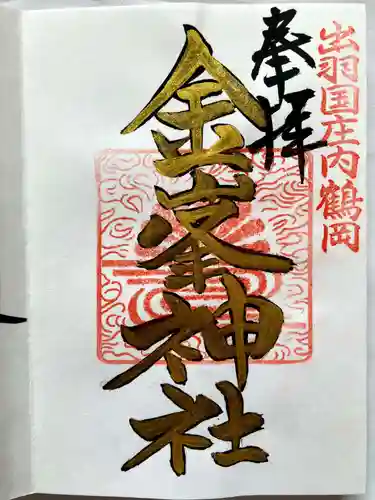 出羽国庄内鶴岡
奉拝
金峯神社